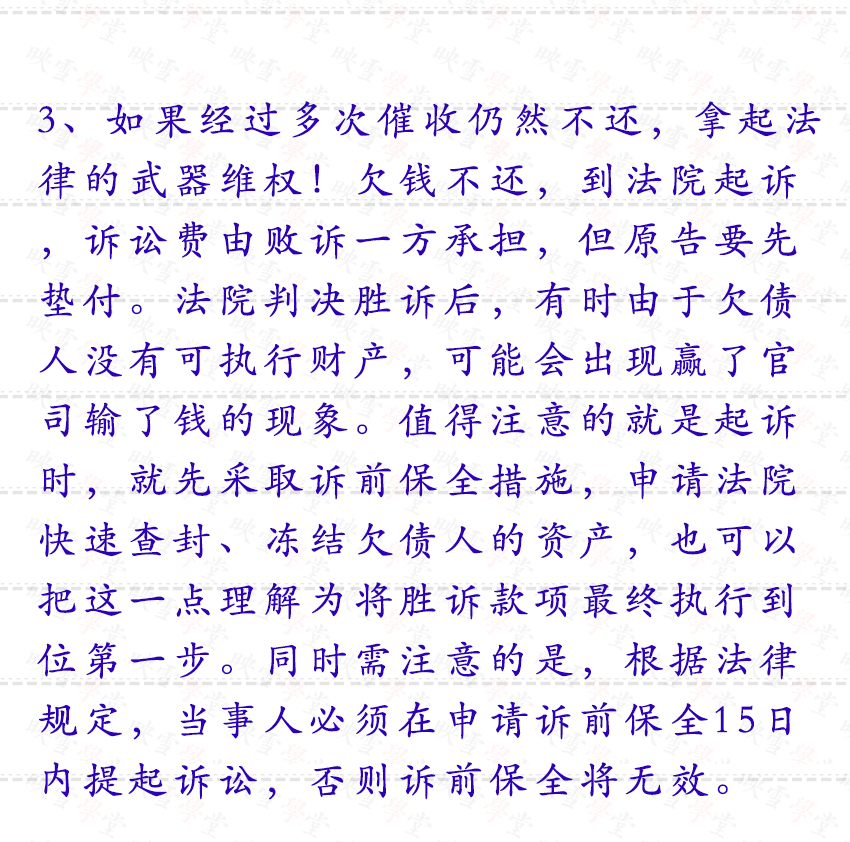 3、如果经过多次催收仍然不还，拿起法
律的武器维权！欠钱不还，到法院起诉
，诉讼费由败诉一方承担，但原告要先
垫付。法院判决胜诉后，有时由于欠债
人没有可执行财产，可能会出现赢了官
司输了钱的现象。值得注意的就是起诉
时，就先采取诉前保全措施，申请法院
快速查封、冻结欠债人的资产，也可以
把这一点理解为将胜诉款项最终执行到
位第一步。同时需注意的是，根据法律
规定，当事人必须在申请诉前保全15日
内提起诉讼，否则诉前保全将无效。